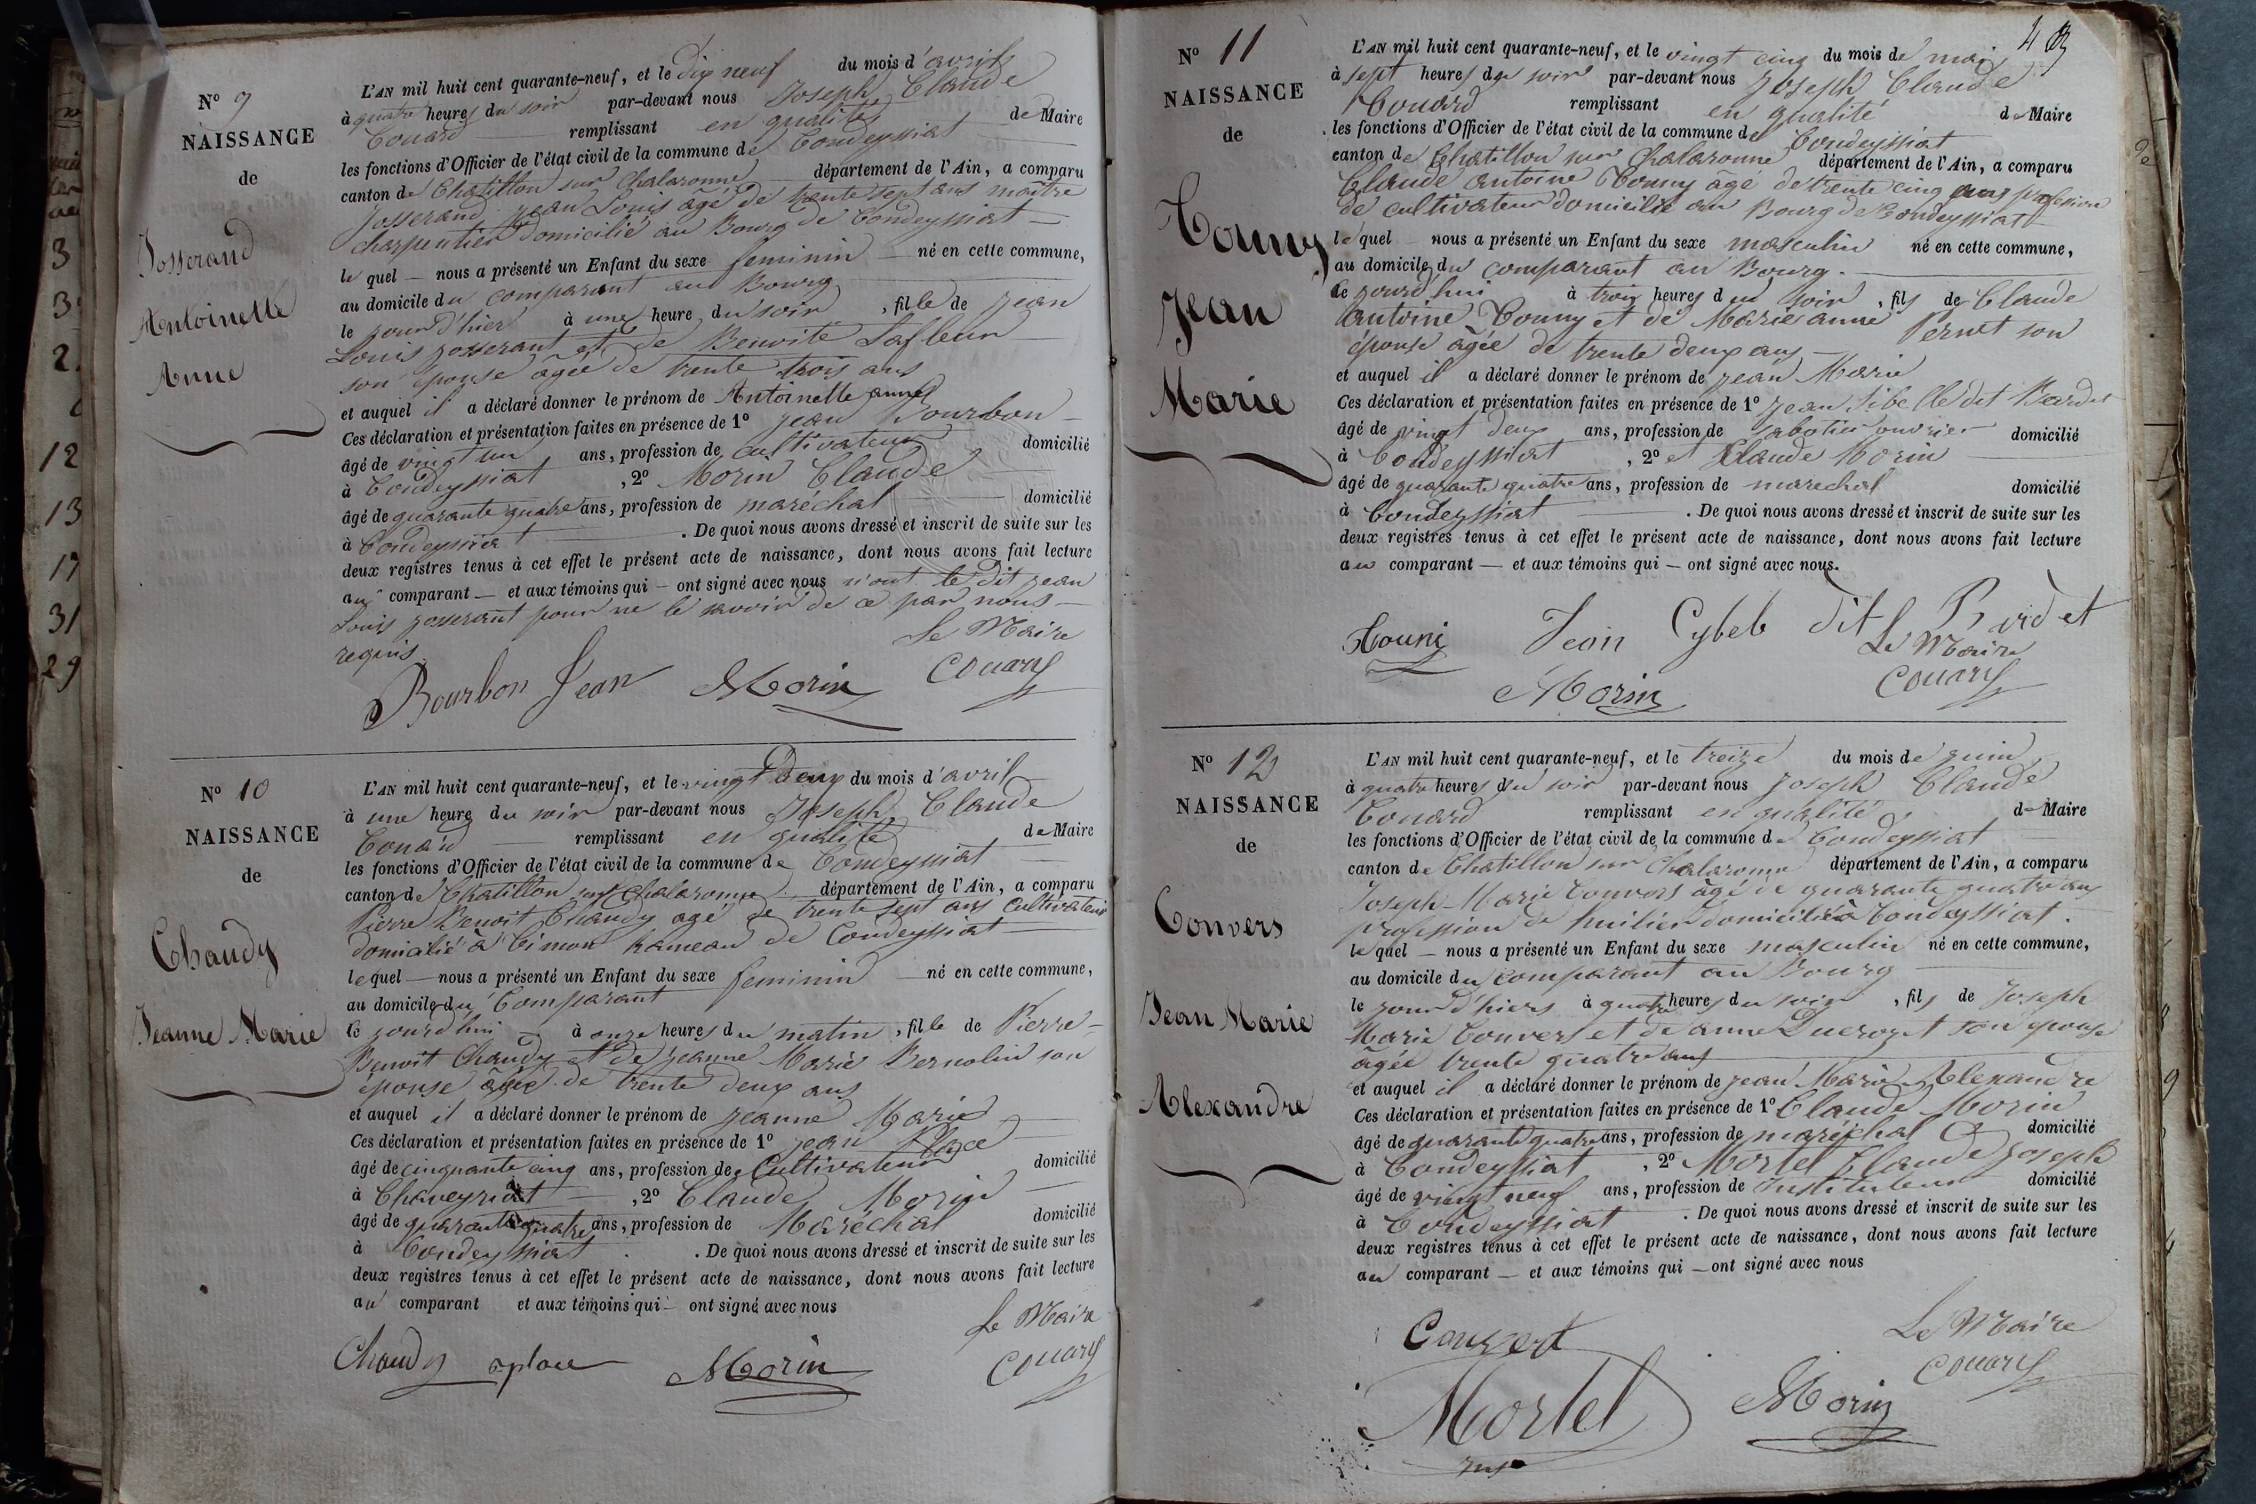 N° 9
NAISSANCE
de
Josserand
Antoinette
Anne
L'AN mil huit cent quarante-neuf, et le dix neuf du mois d'avril
à quatre heures du soir par-devant nous Joseph Claude
Couard remplissant en qualité de Maire
les fonctions d'Officier de l'état civil de la commune de Condeyssiat
canton de Chatillon sur Chalaronne département de l'Ain, a comparu
Josserand jean Louis âgé de trente sept ans maître
charpentier domicilié au Bourg de Condeyssiat
lequel nous a présenté un Enfant du sexe feminin né en cette commune,
au domicile du comparant au Bourg
le jour d'hier à une heure du soir, fille de jean
Louis josserant et de Benoite Lafleur
son épouse âgée de trente trois ans
et auquel il a déclaré donner le prénom de Antoinette anne
Ces déclaration et présentation faites en présence de 1° jean Bourbon
âgé de vingt un ans, profession de cultivateur domicilié
à Condeyssiat, 2° Morin Claude
âgé de quarante quatre ans, profession de maréchal domicilié
à Condeyssiat. De quoi nous avons dressé et inscrit de suite sur les
deux registres tenus à cet effet le présent acte de naissance, dont nous avons fait lecture
au comparant et aux témoins qui ont signé avec nous n'ont le dit jean
Louis josserant pour ne le savoir de ce par nous
requis.
Le Maire
Bourbon Jean Morin Couard
N° 10
NAISSANCE
de
Chaudy
Jeanne Marie
L'AN mil huit cent quarante-neuf, et le vingt Deux du mois d'avril
à une heure du soir par-devant nous Joseph Claude
Couard remplissant en qualité de Maire
les fonctions d'Officier de l'état civil de la commune de Condeyssiat
canton de Chatillon sur Chalaronne département de l'Ain, a comparu
Pierre Benoit Chaudy agé de trente sept ans Cultivateur
domicilié à Cimon hameau de Condeyssiat
lequel nous a présenté un Enfant du sexe feminin né en cette commune,
au domicile du Comparant
le jourd'hui à onze heures du matin, fille de Pierre
Benoit Chaudy et de jeanne Marie Bernolin son
épouse âgée de trente deux ans
et auquel il a déclaré donner le prénom de jeanne Marie
Ces déclaration et présentation faites en présence de 1° jean Place
âgé de cinquante cinq ans, profession de Cultivateur domicilié
à Chaveyriat, 2° Claude Morin
âgé de quarante quatre ans, profession de Maréchal domicilié
à Condeyssiat. De quoi nous avons dressé et inscrit de suite sur les
deux registres tenus à cet effet le présent acte de naissance, dont nous avons fait lecture
au comparant et aux témoins qui ont signé avec nous
Le Maire
Chaudy place Morin Couard
43
N° 11
NAISSANCE
de
Touny
Jean
Marie
L'AN mil huit cent quarante-neuf, et le vingt cinq du mois de mai
à sept heures du soir par-devant nous Joseph Claude
Couard remplissant en qualité de Maire
les fonctions d'Officier de l'état civil de la commune de Condeyssiat
canton de Chatillon sur Chalaronne département de l'Ain, a comparu
Claude antoine Touny âgé de trente cinq ans profession
de cultivateur domicilié au Bourg de Condeyssiat
lequel nous a présenté un Enfant du sexe masculin né en cette commune,
au domicile du comparant au Bourg.
le jourd'hui à trois heures du soir, fils de Claude
antoine Touny et de Marie anne Pernet son
épouse âgée de trente deux ans
et auquel il a déclaré donner le prénom de jean Marie
Ces déclaration et présentation faites en présence de 1° jean Sibelle dit Bardet
âgé de vingt deux ans, profession de sabotier ouvrier domicilié
à Condeyssiat, 2° et Claude Morin
âgé de quarante quatre ans, profession de marechal domicilié
à Condeyssiat. De quoi nous avons dressé et inscrit de suite sur les
deux registres tenus à cet effet le présent acte de naissance, dont nous avons fait lecture
au comparant et aux témoins qui ont signé avec nous.
Touni Jean Cybele dit Bardet
Le Maire
Morin Couard
N° 12
NAISSANCE
de
Convers
Jean Marie
Alexandre
L'AN mil huit cent quarante-neuf, et le treize du mois de juin
à quatre heures du soir par-devant nous Joseph Claude
Couard remplissant en qualité de Maire
les fonctions d'Officier de l'état civil de la commune de Condeyssiat
canton de Chatillon sur Chalaronne département de l'Ain, a comparu
Joseph-Marie Convers âgé de quarante quatre ans
profession de huilier domicilié à Condeyssiat.
lequel nous a présenté un Enfant du sexe masculin né en cette commune,
au domicile du comparant au Bourg
le jour d'hiers à quatre heures du soir, fils de Joseph
Marie Convers et de anne Ducrozet son épouse
âgée trente quatre ans
et auquel il a déclaré donner le prénom de jean Marie Alexandre
Ces déclaration et présentation faites en présence de 1° Claude Morin
âgé de quarante quatre ans, profession de maréchal domicilié
à Condeyssiat, 2° Mortel Claude Joseph
âgé de vingt neuf ans, profession de instituteur domicilié
à Condeyssiat. De quoi nous avons dressé et inscrit de suite sur les
deux registres tenus à cet effet le présent acte de naissance, dont nous avons fait lecture
au comparant et aux témoins qui ont signé avec nous
Le Maire
Convert Couard
Mortel Morin